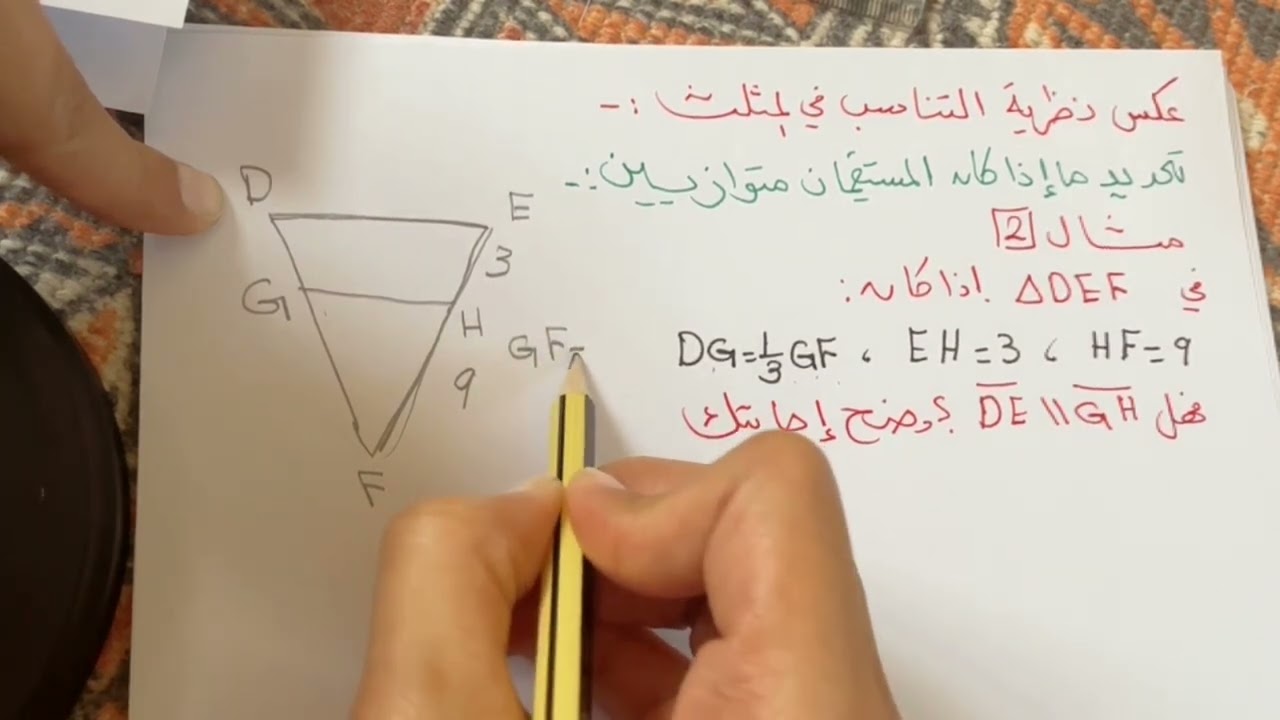 عكس نظرية التناسب في المثلث :-
تحديد ما إذا كان المستقيمان متوازيين :-
مثال 2
في △DEF إذا كان :
DG=1/3 GF ، EH=3 ، HF=9
هل DE // GH ؟ وضح إجابتك
D
E
3
G
H
GF=
9
F